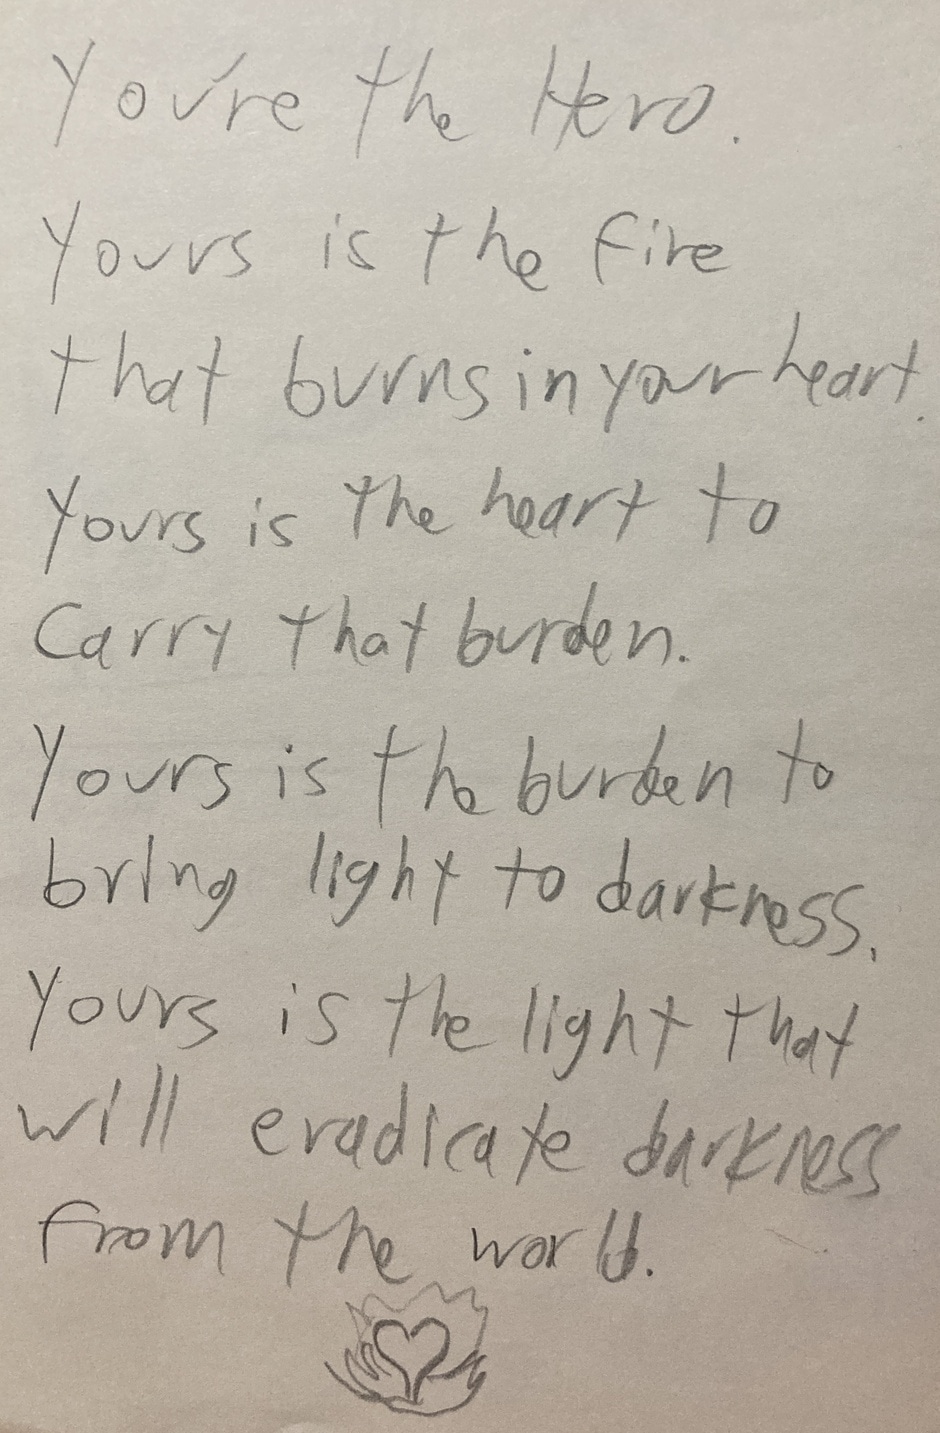 You're the Hero.
Yours is the fire
that burns in your heart.
Yours is the heart to
Carry that burden.
Yours is the burden to
bring light to darkness.
Yours is the light that
will eradicate darkness
from the world.